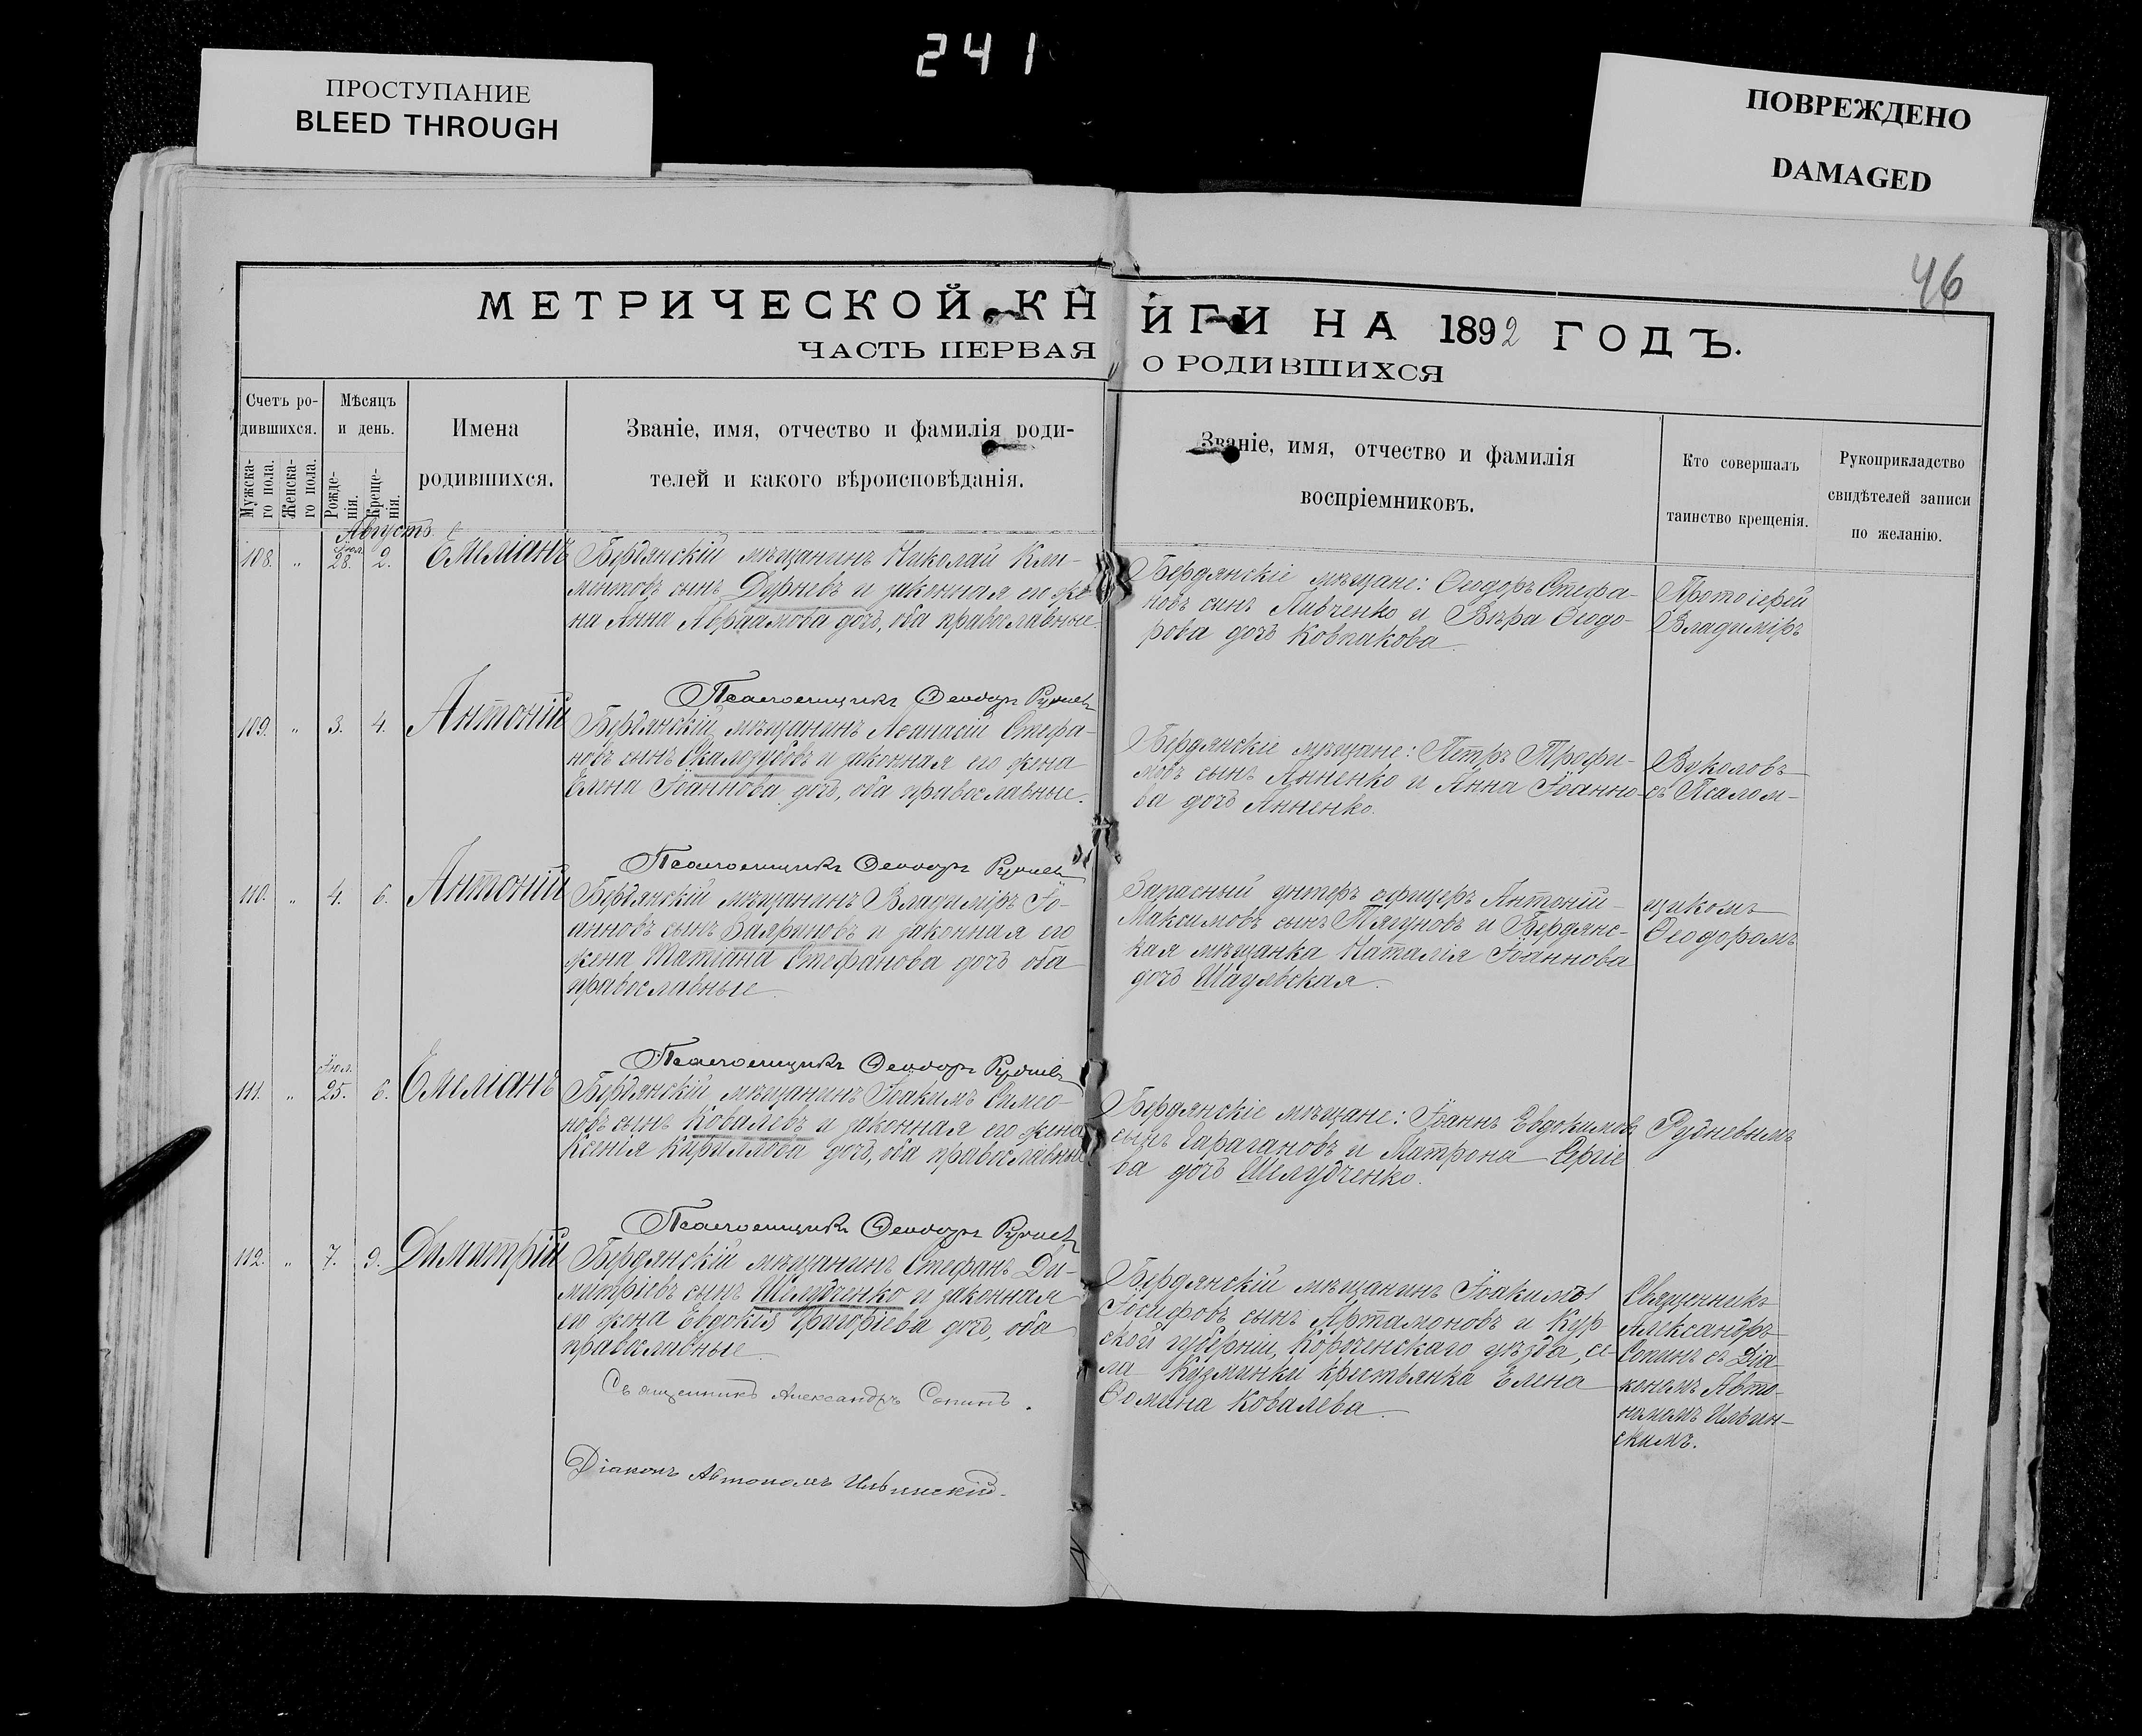 241
ПРОСТУПАНИЕ
BLEED THROUGH
ПОВРЕЖДЕНО
DAMAGED
46
МЕТРИЧЕСКОЙ КНИГИ НА 1892 ГОДЪ.
ЧАСТЬ ПЕРВАЯ О РОДИВШИХСЯ
Счетъ ро-
дившихся.
Мужска-
го пола.
Женска-
го пола.
Мѣсяцъ
и день.
Рожде-
нія.
Креще-
нія.
Имена
родившихся.
Званіе, имя, отчество и фамилія роди-
телей и какого вѣроисповѣданія.
Званіе, имя, отчество и фамилія
воспріемниковъ.
Кто совершалъ
таинство крещенія.
Рукоприкладство
свидѣтелей записи
по желанію.
Августъ
108. " Іюл. 28. 2. Емеліанъ
Бердянскій мѣщанинъ Николай Кли-
ментовъ сынъ Дурневъ и законная его же-
на Анна Авраамова дочь, оба православные.
Бердянскіе мѣщане: Ѳеодоръ Стефа-
новъ сынъ Пивченко и Вѣра Ѳеодо-
рова дочь Ковпакова.
Протоіерей
Владиміръ
Псаломщикъ Ѳеодоръ Рудневъ
109. " 3. 4. Антоній
Бердянскій мѣщанинъ Аѳанасій Стефа-
новъ сынъ Скалозубовъ и законная его жена
Елена Іоаннова дочь, оба православные.
Бердянскіе мѣщане: Петръ Трофи-
мовъ сынъ Анненко и Анна Іоанно-
ва дочь Анненко.
Вуколовъ
съ Псалом-
Псаломщикъ Ѳеодоръ Рудневъ
110. " 4. 6. Антоній
Бердянскій мѣщанинъ Владиміръ Іо-
анновъ сынъ и законная его
жена Татіана Стефанова дочь оба
православные.
Запасный унтеръ офицеръ Антоній
Максимовъ сынъ и Бердянс-
кая мѣщанка Наталія Іоаннова
дочь Шаульская.
щикомъ
Ѳеодоромъ
Псаломщикъ Ѳеодоръ Рудневъ
111. " Іюл. 25. 6. Емеліанъ
Бердянскій мѣщанинъ Іоакимъ Симео-
новъ сынъ Ковалевъ и законная его жена
Ксенія Кириллова дочь, оба православные
Бердянскіе мѣщане: Іоаннъ Евдокимовъ
сынъ Карагановъ и Матрона Сергіе-
ва дочь Шелудченко.
Рудневымъ
Псаломщикъ Ѳеодоръ Рудневъ
112. " 7. 9. Димитрій
Бердянскій мѣщанинъ Стефанъ Ди-
митріевъ сынъ Шелудченко и законная
его жена Евдокія Григоріева дочь, оба
православные.
Бердянскій мѣщанинъ Іоакимъ
Іосифовъ сынъ Артамоновъ и Кур-
ской губерніи, Короченскаго уѣзда, се-
ла Кузминки крестьянка Елена
Ѳомина Ковалева.
Священникъ
Александръ
Сопинъ съ Діа-
кономъ Авто-
номомъ Ильин-
скимъ.
Священникъ Александръ Сопинъ.
Діаконъ Автономъ Ильинскій.